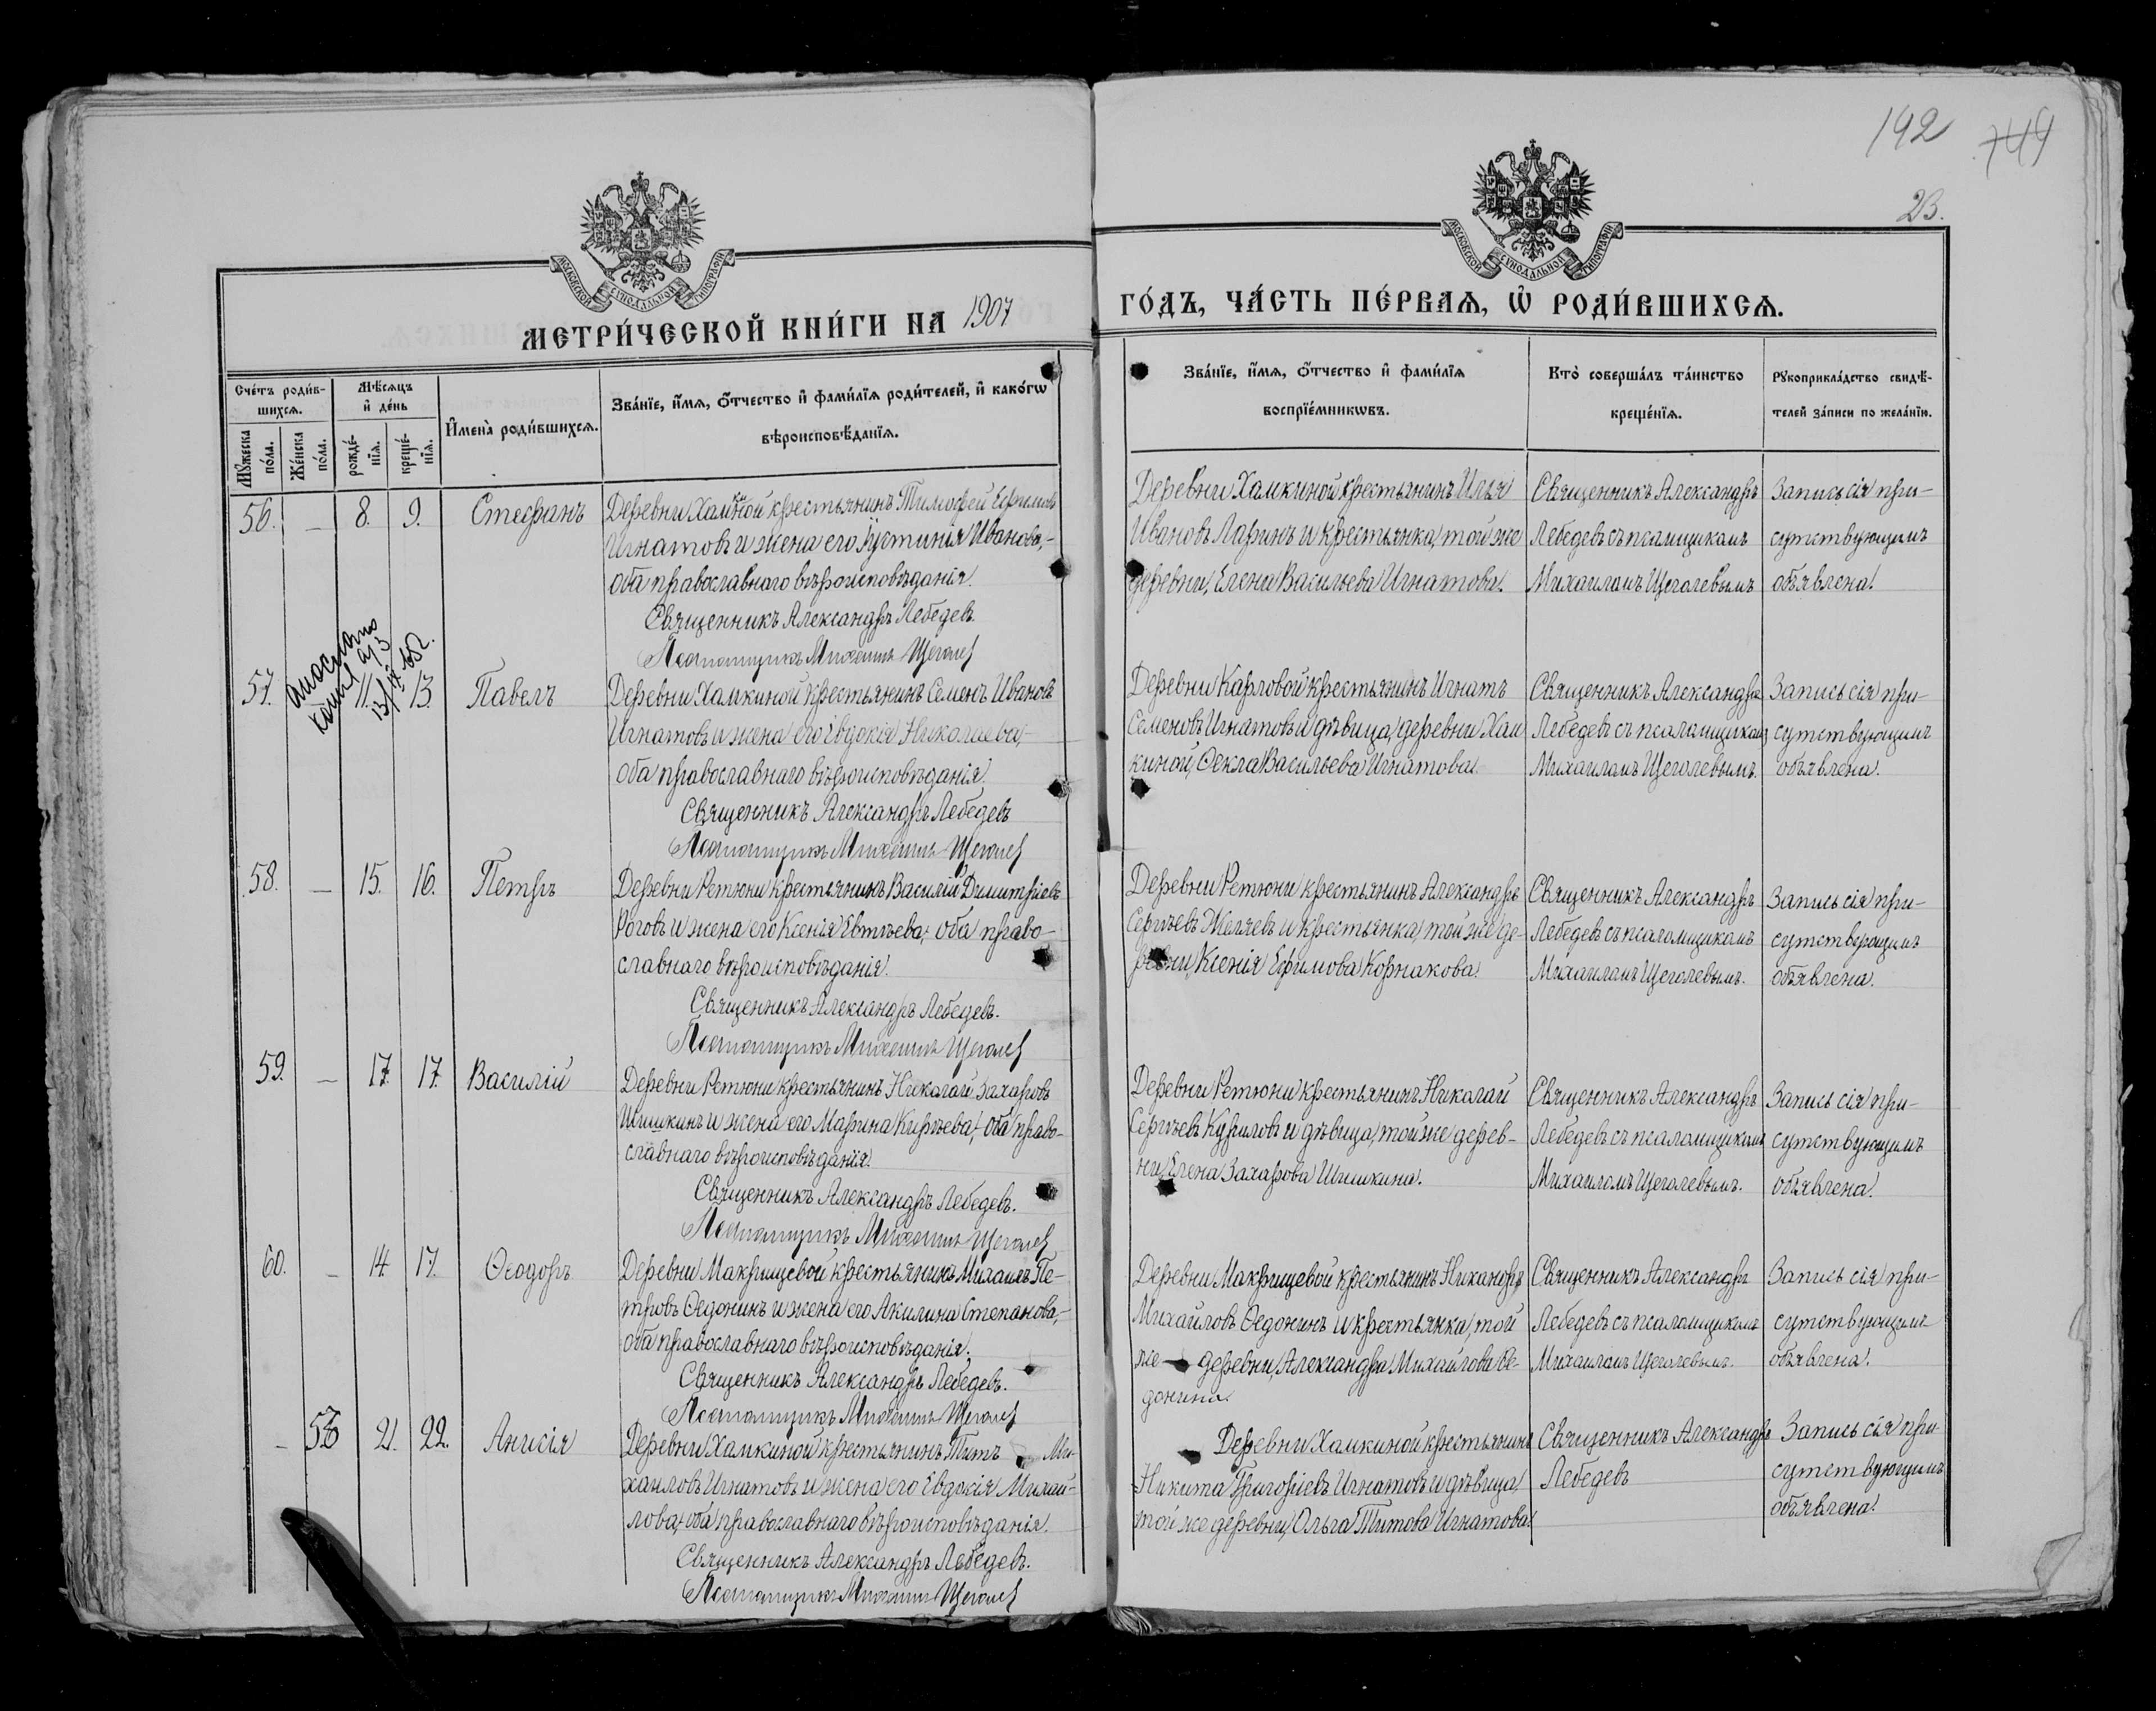 142
744
23.
МОСКОВСКОЙ СѴНОДАЛЬНОЙ ТИПОГРАФІИ
МОСКОВСКОЙ СѴНОДАЛЬНОЙ ТИПОГРАФІИ
МЕТРИ́ЧЕСКОЙ КНИ́ГИ НА 1907
ГО́ДЪ, ЧА́СТЬ ПЕ́РВАѦ, Ѡ҆ РОДИ́ВШИХСѦ.
Сче́тъ роди́в-
шихсѧ.
Мꙋ́жеска по́ла.
Же́нска по́ла.
Мѣ́сѧцъ и҆ де́нь
рожде́-нїѧ.
креще́-нїѧ.
И҆мена̀ роди́вшихсѧ.
Зва́нїе, и҆́мѧ, ѻ҆́тчество и҆ фами́лїѧ роди́телей, и҆ како́гѡ
вѣроисповѣ́данїѧ.
Зва́нїе, и҆́мѧ, ѻ҆́тчество и҆ фами́лїѧ
воспрїе́мникѡвъ.
Кто̀ соверша́лъ та́инство
креще́нїѧ.
Рꙋкоприкла́дство свидѣ́-
телей за́писи по жела́нїю.
56. — 8. 9. Стефанъ
Деревни Хамкиной крестьянинъ Тимофей Ефимовъ
Игнатовъ и жена его Іустинія Иванова,-
оба православнаго вѣроисповѣданія.
Священникъ Александръ Лебедевъ.
Псаломщикъ Михаилъ Щеголев
Деревни Хамкиной крестьянинъ Илья
Ивановъ Ларинъ и крестьянка, той же
деревни, Елена Васильева Игнатова.
Священникъ Александръ
Лебедевъ съ псаломщикомъ
Михаиломъ Щеголевымъ
Запись сія при-
сутствующимъ
объявлена.
57. 11. 13. Павелъ
Деревни Хамкиной крестьянинъ Семенъ Ивановъ
Игнатовъ и жена его Евдокія Николаева,-
оба православнаго вѣроисповѣданія.
Священникъ Александръ Лебедевъ
Псаломщикъ Михаилъ Щеголев
Деревни Карловой крестьянинъ Игнатъ
Семеновъ Игнатовъ и дѣвица, деревни Хам
киной, Ѳекла Васильева Игнатова.
Священникъ Александръ
Лебедевъ съ псаломщикомъ
Михаиломъ Щеголевымъ.
Запись сія при-
сутствующимъ
объявлена.
58. — 15. 16. Петръ
Деревни Ретюни крестьянинъ Василій Димитріевъ
Роговъ и жена его Ксенія Евтѣева,- оба право-
славнаго вѣроисповѣданія.
Священникъ Александръ Лебедевъ.
Псаломщикъ Михаилъ Щеголев
Деревни Ретюни крестьянинъ Александръ
Сергѣевъ Жегаевъ и крестьянка, той же де-
ревни, Ксенія Ефимова Корнакова.
Священникъ Александръ
Лебедевъ съ псаломщикомъ
Михаиломъ Щеголевымъ.
Запись сія при-
сутствующимъ
объявлена.
59. — 17. 17. Василій
Деревни Ретюни крестьянинъ Николай Захаровъ
Шишкинъ и жена его Марина Кирѣева,- оба право-
славнаго вѣроисповѣданія.
Священникъ Александръ Лебедевъ.
Псаломщикъ Михаилъ Щеголев
Деревни Ретюни крестьянинъ Николай
Сергѣевъ Куриловъ и дѣвица, той же дерев-
ни, Елена Захарова Шишкина.
Священникъ Александръ
Лебедевъ съ псаломщикомъ
Михаиломъ Щеголевымъ.
Запись сія при-
сутствующимъ
объявлена.
60. — 14. 17. Ѳеодоръ
Деревни Макрищевой крестьянинъ Михаилъ Пе-
тровъ Ѳедонинъ и жена его Акилина Степанова,-
оба православнаго вѣроисповѣданія.
Священникъ Александръ Лебедевъ.
Псаломщикъ Михаилъ Щеголев
Деревни Макрищевой крестьянинъ Никаноръ
Михайловъ Ѳедонинъ и крестьянка, той
же деревни, Александра Михайлова Ѳе-
донина.
Священникъ Александръ
Лебедевъ съ псаломщикомъ
Михаиломъ Щеголевымъ.
Запись сія при-
сутствующимъ
объявлена.
— 21. 22. Анисія
Деревни Хамкиной крестьянинъ Титъ Ми-
хаиловъ Игнатовъ и жена его Евдокія Михай-
лова,- оба православнаго вѣроисповѣданія.
Священникъ Александръ Лебедевъ.
Псаломщикъ Михаилъ Щеголев
Деревни Хамкиной крестьянинъ
Никита Григоріевъ Игнатовъ и дѣвица,
той же деревни, Ольга Титова Игнатова.
Священникъ Александръ
Лебедевъ
Запись сія при-
сутствующимъ
объявлена.